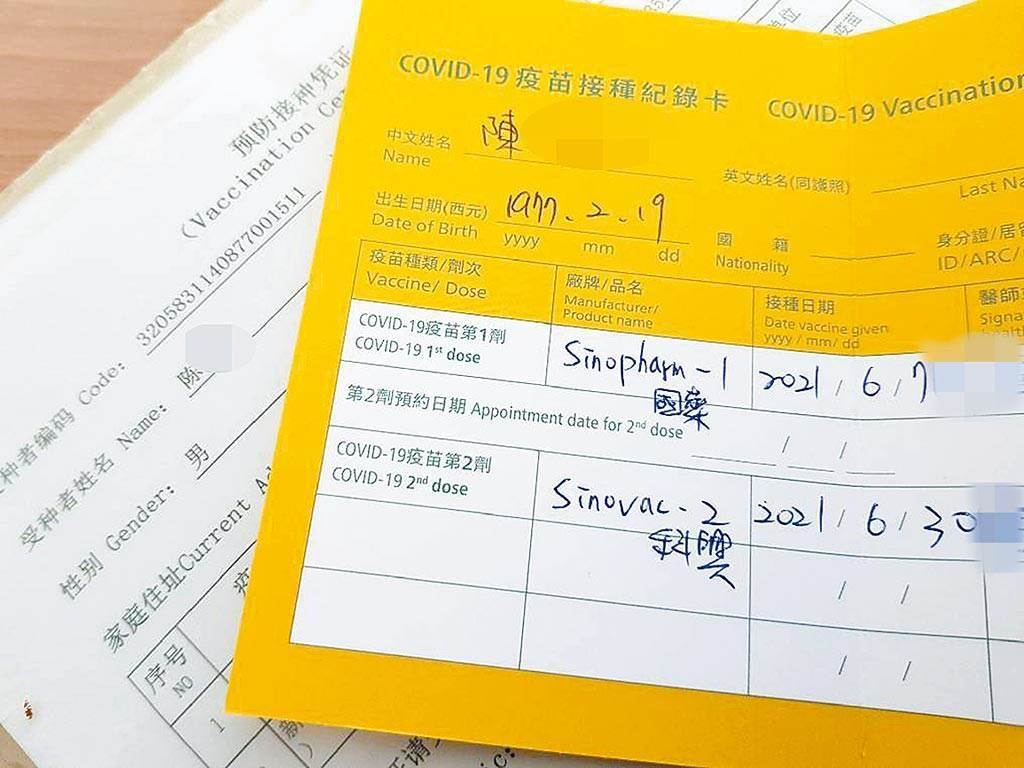 COVID-19 疫苗接種紀錄卡
COVID-19 Vaccination
中文姓名 陳
Name
英文姓名(同護照)
Last Na
出生日期(西元) 1977.2.19
Date of Birth yyyy mm dd
國籍
Nationality
身分證/居留
ID/ARC/
疫苗種類/劑次
Vaccine/ Dose
廠牌/品名
Manufacturer/
Product name
接種日期
Date vaccine given
yyyy / mm/ dd
醫師
Signa
COVID-19疫苗第1劑
COVID-19 1st dose
Sinopharm-1
國藥
2021 / 6 / 7
第2劑預約日期 Appointment date for 2nd dose / /
COVID-19疫苗第2劑
COVID-19 2nd dose
Sinovac-2
科興
2021 / 6 / 30
/ /
/ /
预防接种凭证
(Vaccination Ce
种者编码 Code: 3205831140877001511
受种者姓名 Name: 陈
性别 Gender: 男
家庭住址Current Ad
序号
NO
1
疫
新
单位
疫苗